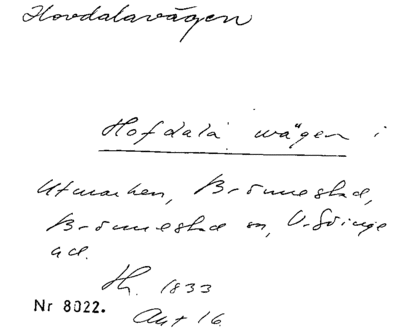 Hovdalavägen
Hofdala wägen i
Utmarken, Brönnestad,
Brönnestad sn, V. Göinge
hd.
Th. 1833
Akt 16.
Nr 8022.